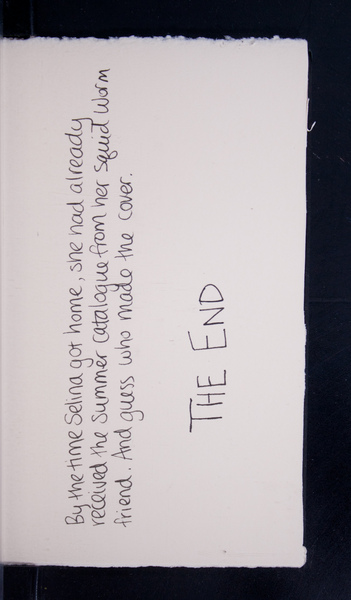 By the time Selina got home, she had already
received the Summer catalogue from her Squid Worm
friend. And guess who made the cover.
THE END